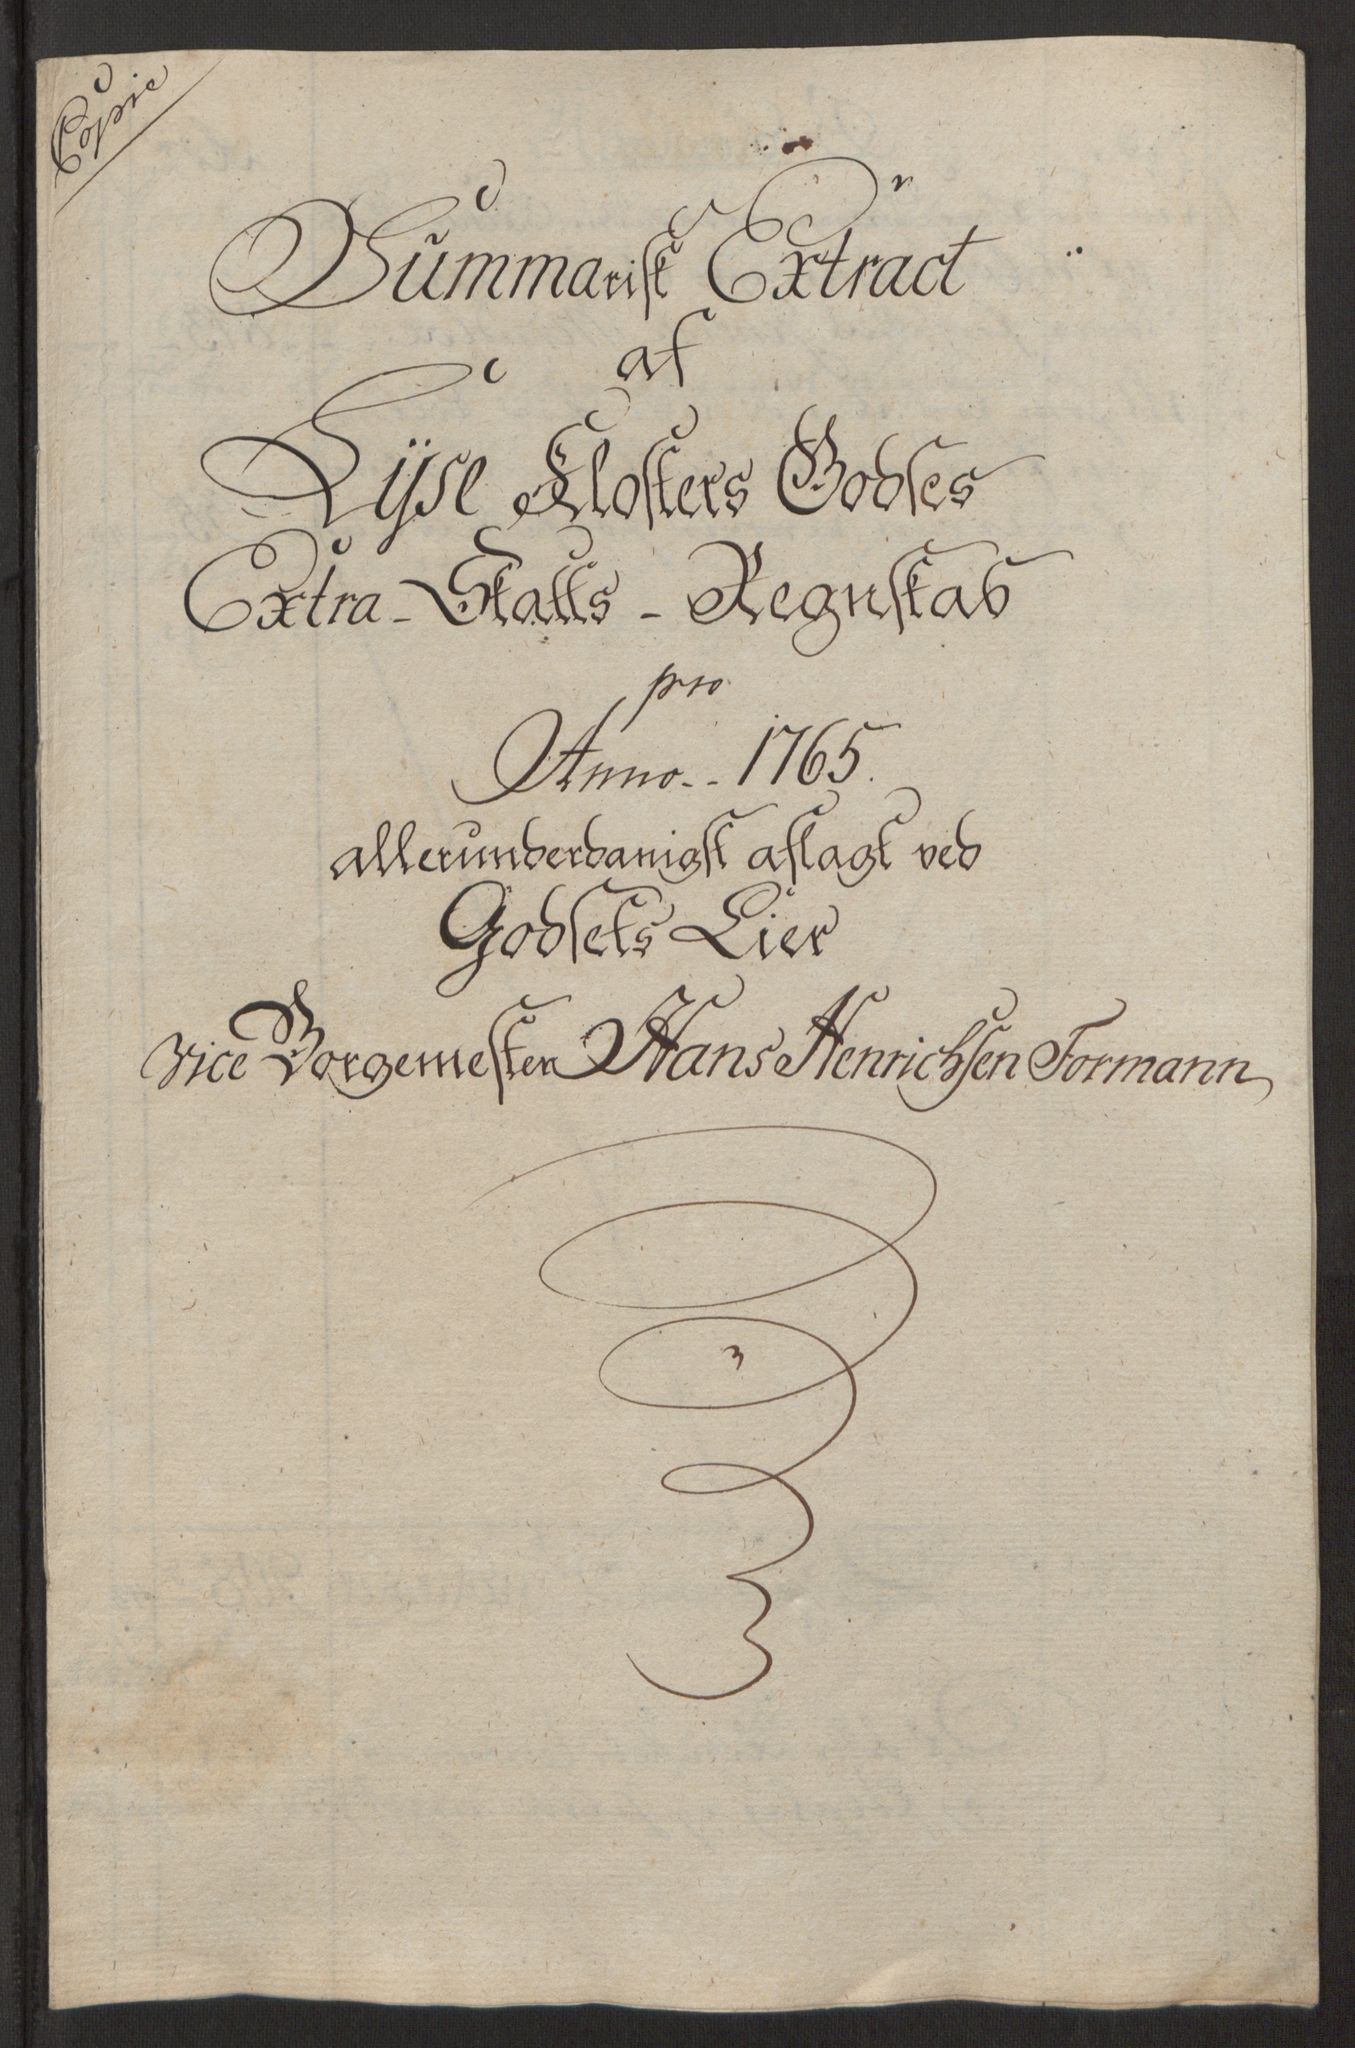 Copie
Summarisk Extract
af
Lÿse Klosters Godses
Extra-Skatts-Regnskab
pro
Anno.. 1765.
allerunderdanigst aflagt ved
Godsets Eier
Vice Borgemester Hans Henrichsen Formann